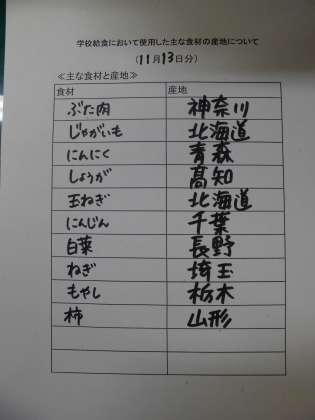 学校給食において使用した主な食材の産地について
(11月13日分)
≪主な食材と産地≫
食材 産地
ぶた肉 神奈川
じゃがいも 北海道
にんにく 青森
しょうが 高知
玉ねぎ 北海道
にんじん 千葉
白菜 長野
ねぎ 埼玉
もやし 栃木
柿 山形